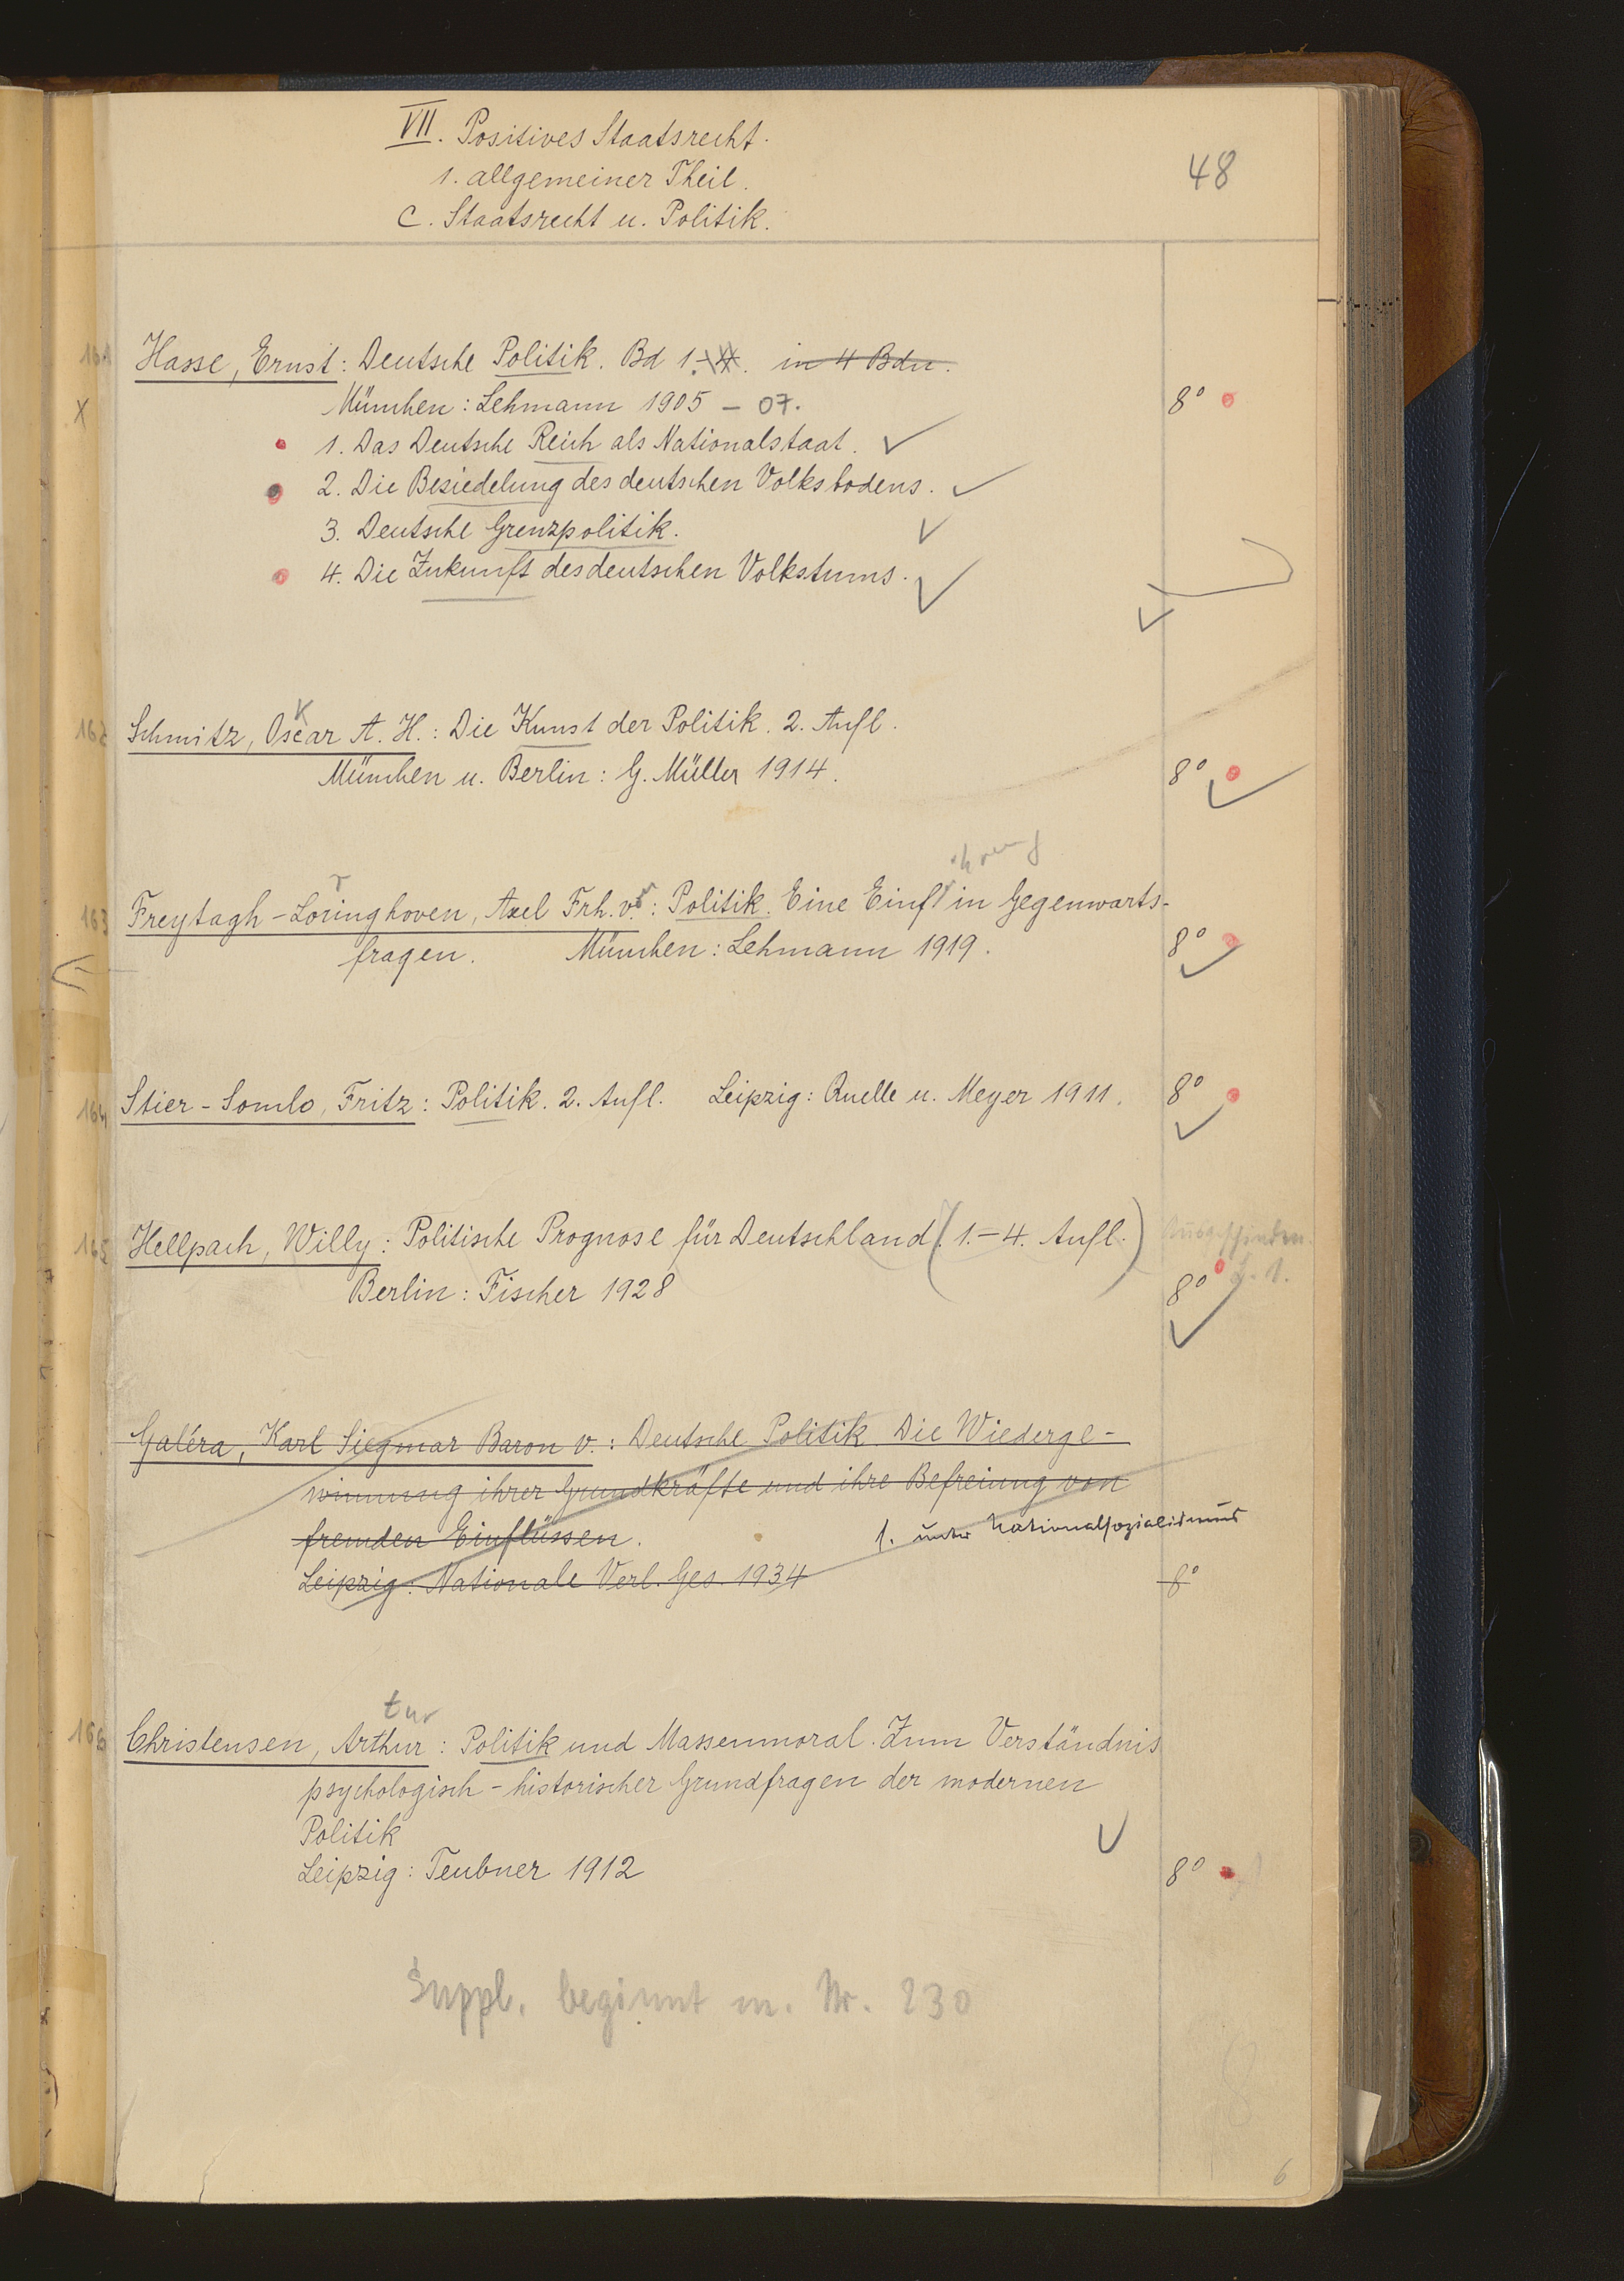 VII. Positives Staatsrecht.
1. allgemeiner Theil.
48
C. Staatsrecht u. Politik.
161 Hasse, Ernst: Deutsche Politik. Bd 1.-4. in 4 Bdn.
X München: Lehmann 1905 - 07. 8°
1. Das Deutsche Reich als Nationalstaat.
2. Die Besiedelung des deutschen Volksbodens.
3. Deutsche Grenzpolitik.
4. Die Zukunft des deutschen Volkstums.
k
162 Schmitz, Oscar A. H.: Die Kunst der Politik. 2. Aufl.
München u. Berlin: G. Müller 1914. 8°
r
163 Freytagh-Loringhoven, Axel Frh. v.: Politik. Eine Einf in Gegenwarts-
fragen. München: Lehmann 1919. 8°
164 Stier-Somlo, Fritz: Politik. 2. Aufl. Leipzig: Quelle u. Meyer 1911. 8°
165 Hellpach, Willy: Politische Prognose für Deutschland (1.-4. Aufl.)
Berlin: Fischer 1928 8°
Galéra, Karl Siegmar Baron v.: Deutsche Politik. Die Wiederge-
winnung ihrer Grundkräfte und ihre Befreiung von
fremden Einflüssen. s. unter Nationalsozialismus
Leipzig: Nationale Verl. Ges. 1934 8°
tur
166 Christensen, Arthur: Politik und Massenmoral. Zum Verständnis
psychologisch-historischer Grundfragen der modernen
Politik
Leipzig: Teubner 1912 8°
Suppl. beginnt m. Nr. 230
8
6